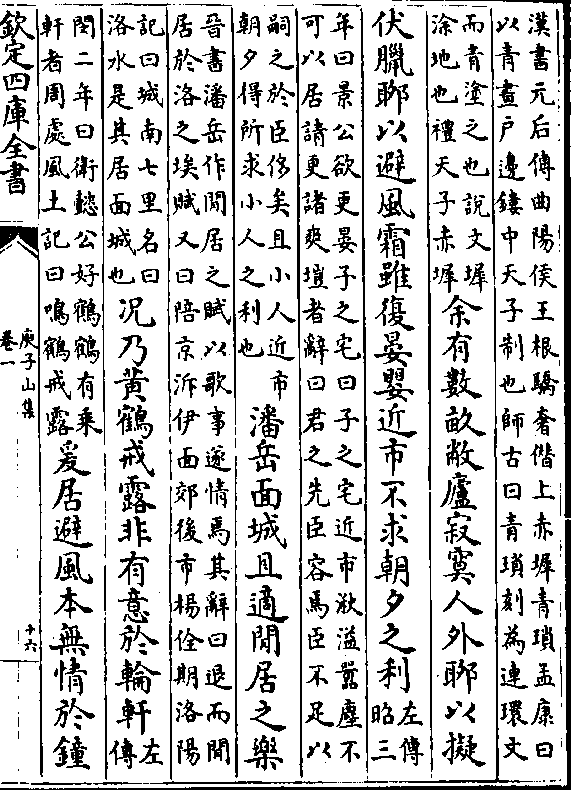 漢書元后傳曲陽侯王根驕奢僭上赤墀青瑣孟康曰
以青畫戶邊鏤中天子制也師古曰青瑣刻為連環文
而青塗之也說文墀
涂地也禮天子赤墀
余有數畝敝廬寂寞人外聊以擬
伏臘聊以避風霜雖復晏嬰近市不求朝夕之利
左傳
昭三
年曰景公欲更晏子之宅曰子之宅近市湫溢囂塵不
可以居請更諸爽塏者辭曰君之先臣容焉臣不足以
嗣之於臣侈矣且小人近市
朝夕得所求小人之利也
潘岳面城且適閒居之樂
晉書潘岳作閒居之賦以歌事遂情焉其辭曰退而閒
居於洛之埃賦又曰陪京泝伊面郊後市楊佺期洛陽
記曰城南七里名曰
洛水是其居面城也
況乃黃鶴戒露非有意於輪軒
左
傳
閔二年曰衛懿公好鶴鶴有乘
軒者周處風土記曰鳴鶴戒露
爰居避風本無情於鐘
欽定四庫全書
庾子山集
卷一
十六